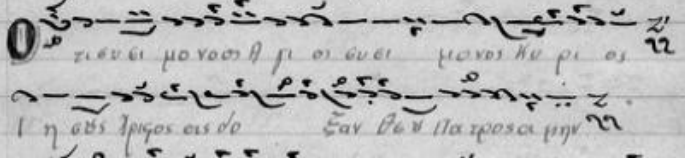 Ο τι συ ει μονος Α γι ος συ ει μονος Κυ ρι ος
Ι η σους Χριστος εις δο ξαν Θεου Πατρος αμην